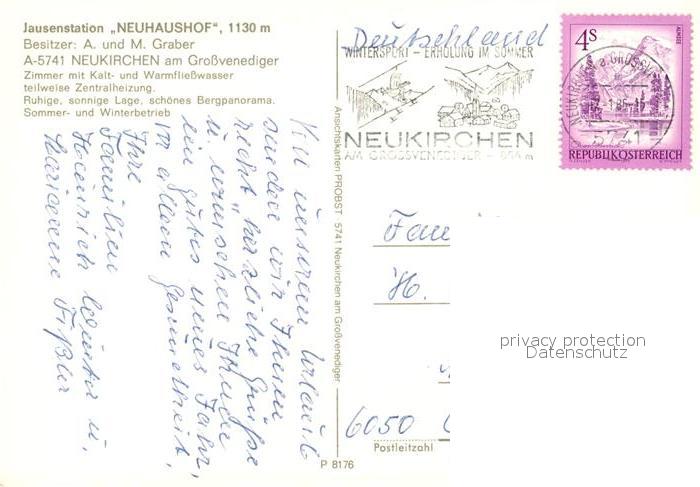 Jausenstation „NEUHAUSHOF“, 1130 m
Besitzer: A. und M. Graber
A-5741 NEUKIRCHEN am Großvenediger
Zimmer mit Kalt- und Warmfließwasser
teilweise Zentralheizung.
Ruhige, sonnige Lage, schönes Bergpanorama.
Sommer- und Winterbetrieb
Von unserem Urlaub
senden wir Ihnen
recht herzliche Grüße
u. wünschen Ihnen
ein gutes neues Jahr,
vor allem Gesundheit.
Ihre
Familien
Heinrich u.
Marianne
Ansichtskarten PROBST 5741 Neukirchen am Großvenediger
P 8176
Deutschland
WINTERSPORT - ERHOLUNG IM SOMMER
NEUKIRCHEN
AM GROSSVENEDIGER - 856 m
4S
ALMSEE
REPUBLIK ÖSTERREICH
5741
Fam
H.
6050
Postleitzahl
privacy protection
Datenschutz